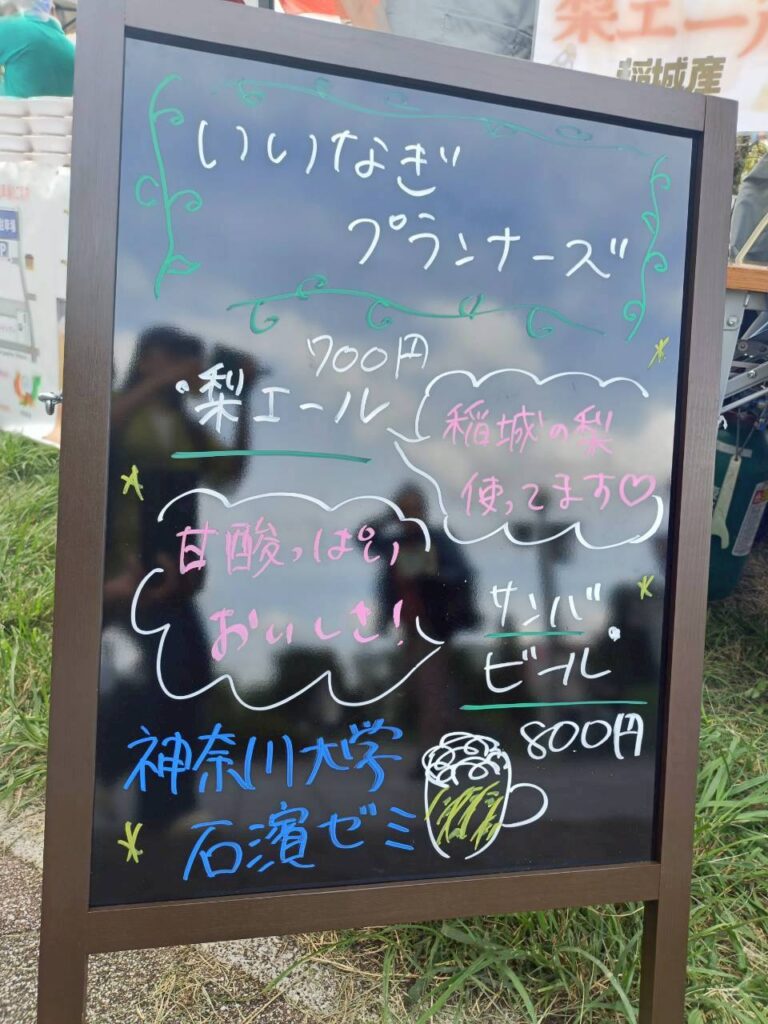 梨エール
稲城産
いいなぎ
プランナーズ
700円
・梨エール
稲城の梨
使ってます♡
甘酸っぱい
おいしさ!
サンバ
ビール
800円
神奈川大学
石濱ゼミ
P